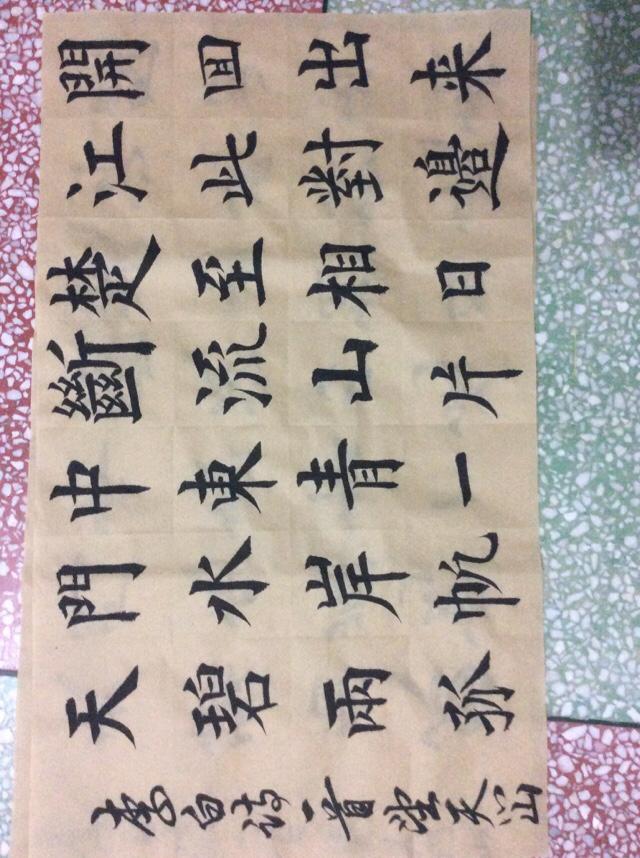 天門中斷楚江開
碧水東流至此回
兩岸青山相對出
孤帆一片日邊来
李白诗一首望天山